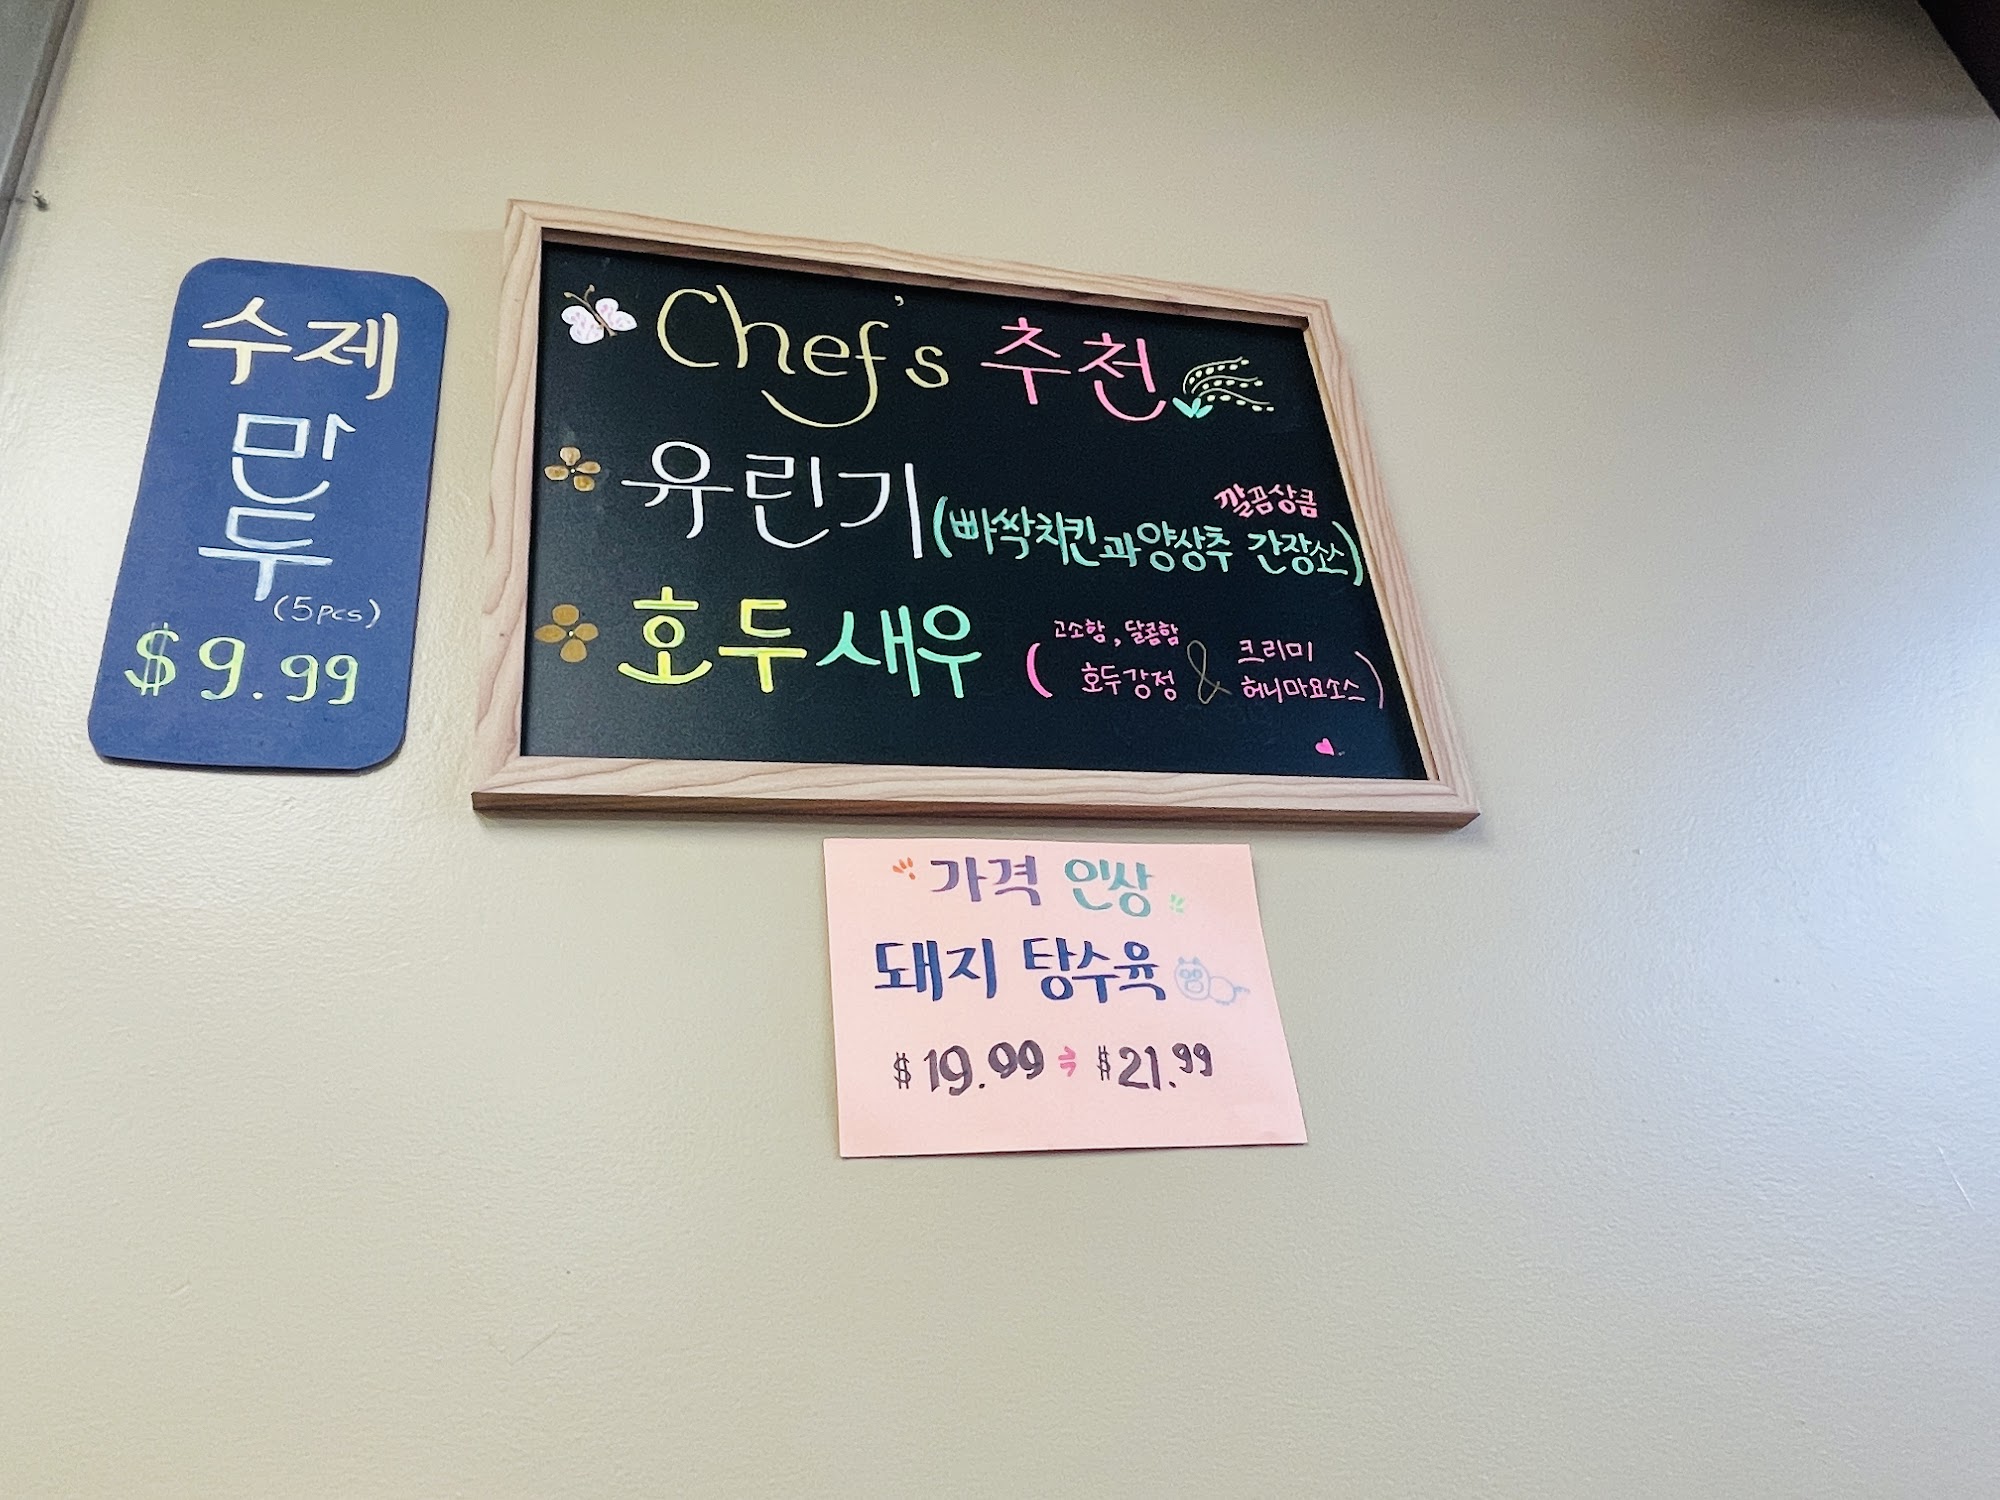 수제
만
두
(5pcs)
$9.99
Chef's 추천
유린기
깔끔상큼
(빠싹치킨과양상추 간장소스)
호두새우
고소함, 달콤함
(호두강정 & 크리미
허니마요소스)
가격 인상
돼지 탕수육
$19.99 → $21.99